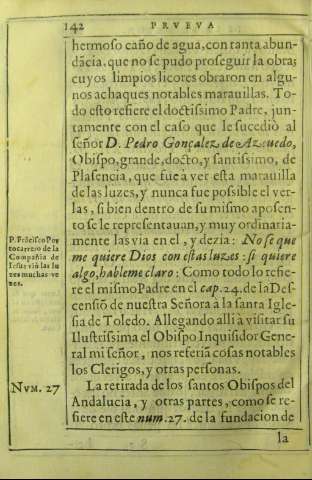 142 PRVEVA
hermoso caño de agua, con tanta abun-
dãcia, que no se pudo proseguir la obra;
cuyos limpios licores obraron en algu-
nos achaques notables marauillas. To-
do esto refiere el doctissimo Padre, jun-
tamente con el caso que le sucediò al
señor D. Pedro Gonçalez de Azeuedo,
Obispo, grande, docto, y santissimo, de
Plasencia, que fue à ver esta marauilla
de las luzes, y nunca fue possible el ver-
las, si bien dentro de su mismo aposen-
to se le representauan, y muy ordinaria-
mente las via en el, y dezia: No se que
me quiere Dios con estas luzes: si quiere
algo, hableme claro: Como todo lo refie-
re el mismo Padre en el cap. 24. de la Des-
censiõ de nuestra Señora à la santa Igle-
sia de Toledo. Allegando alli à visitar su
Ilustrissima el Obispo Inquisidor Gene-
ral mi señor, nos referia cosas notables
los Clerigos, y otras personas.
La retirada de los santos Obispos del
Andalucia, y otras partes, como se re-
fiere en este num. 27. de la fundacion de
la
P. Frãcisco Por
tocarrero de la
Compañia de
Iesus viò las lu
zes muchas ve
zes.
NVM. 27